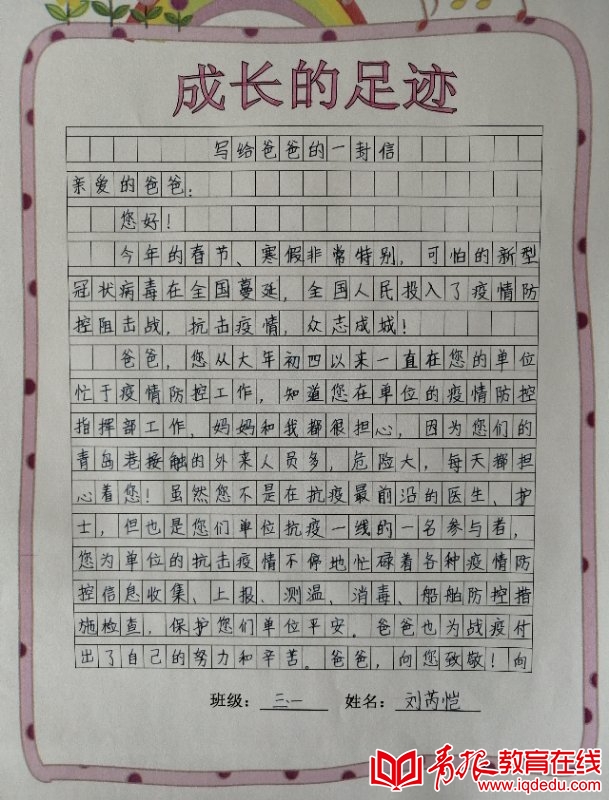 成长的足迹
写给爸爸的一封信
亲爱的爸爸：
您好！
今年的春节、寒假非常特别，可怕的新型
冠状病毒在全国蔓延，全国人民投入了疫情防
控阻击战，抗击疫情，众志成城！
爸爸，您从大年初四以来一直在您的单位
忙于疫情防控工作，知道您在单位的疫情防控
指挥部工作，妈妈和我都很担心，因为您们的
青岛港接触的外来人员多，危险大，每天都担
心着您！虽然您不是在抗疫最前沿的医生、护
士，但也是您们单位抗疫一线的一名参与者，
您为单位的抗击疫情不停地忙碌着各种疫情防
控信息收集、上报、测温、消毒、船舶防控措
施检查，保护您们单位平安。爸爸也为战疫付
出了自己的努力和辛苦。爸爸，向您致敬！向
班级：三一 姓名：刘芮恺
青报教育在线
www.iqdedu.com